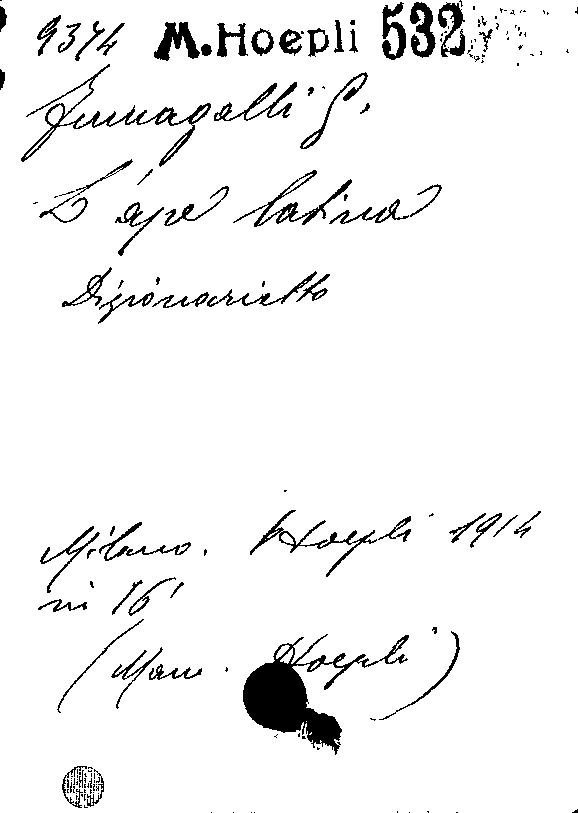 9374 M. Hoepli 532
Fumagalli G.
L'ape latina
Dizionarietto
Milano. Hoepli 1914
in 16°
(Man. Hoepli)